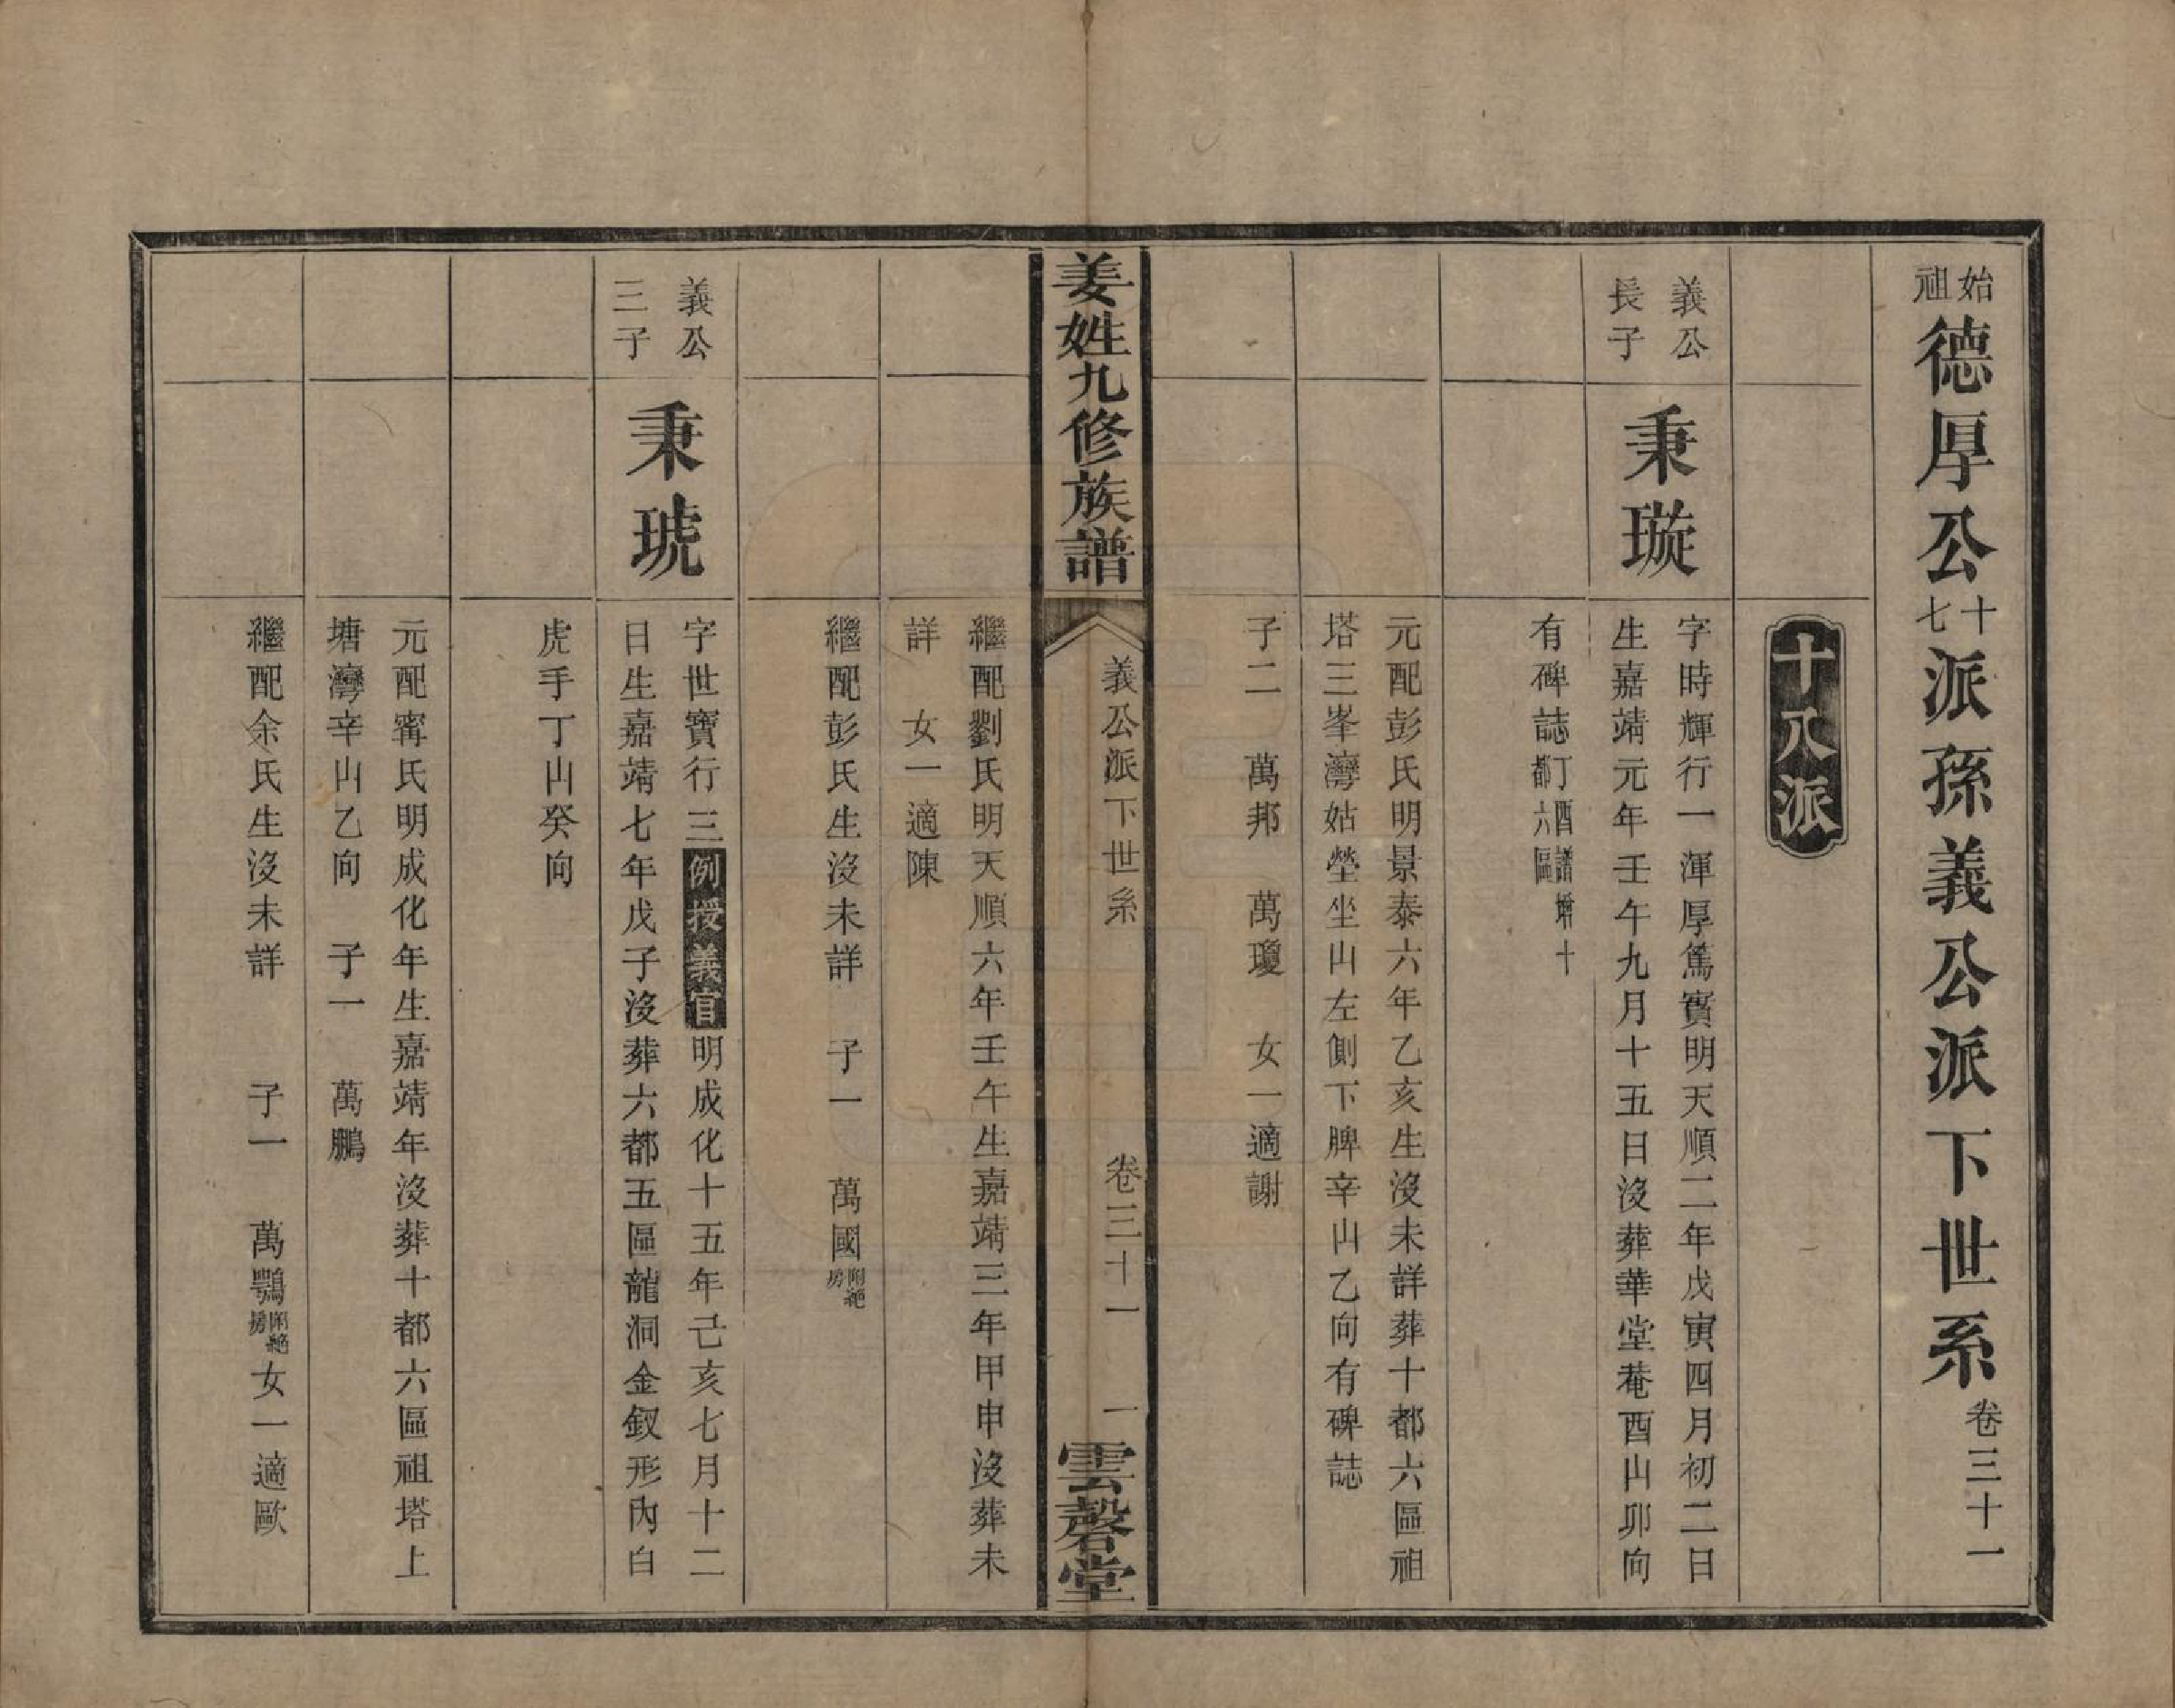 始祖德厚公十七派孫義公派下世系卷三十一
十八派
義公長子
秉璇
字時輝行一渾厚篤實明天順二年戊寅四月初二日
生嘉靖元年壬午九月十五日沒葬華堂菴酉山卯向
有碑誌丁酉譜增十都六區
元配彭氏明景泰六年乙亥生沒未詳葬十都六區祖
塔三峯灣姑塋坐山左側下脾辛山乙向有碑誌
子二　萬邦　萬瓊　女一適謝
姜姓九修族譜
義公派下世系　卷三十一　一
雲磬堂
繼配劉氏明天順六年壬午生嘉靖三年甲申沒葬未
詳　女一適陳
繼配彭氏生沒未詳　子一　萬國附絕房
義公三子
秉琥
字世寶行三例授義官明成化十五年己亥七月十二
日生嘉靖七年戊子沒葬六都五區龍洞金釵形內白
虎手丁山癸向
元配甯氏明成化年生嘉靖年沒葬十都六區祖塔上
塘灣辛山乙向　子一　萬鵬
繼配余氏生沒未詳　子一　萬鶚附絕房女一適歐